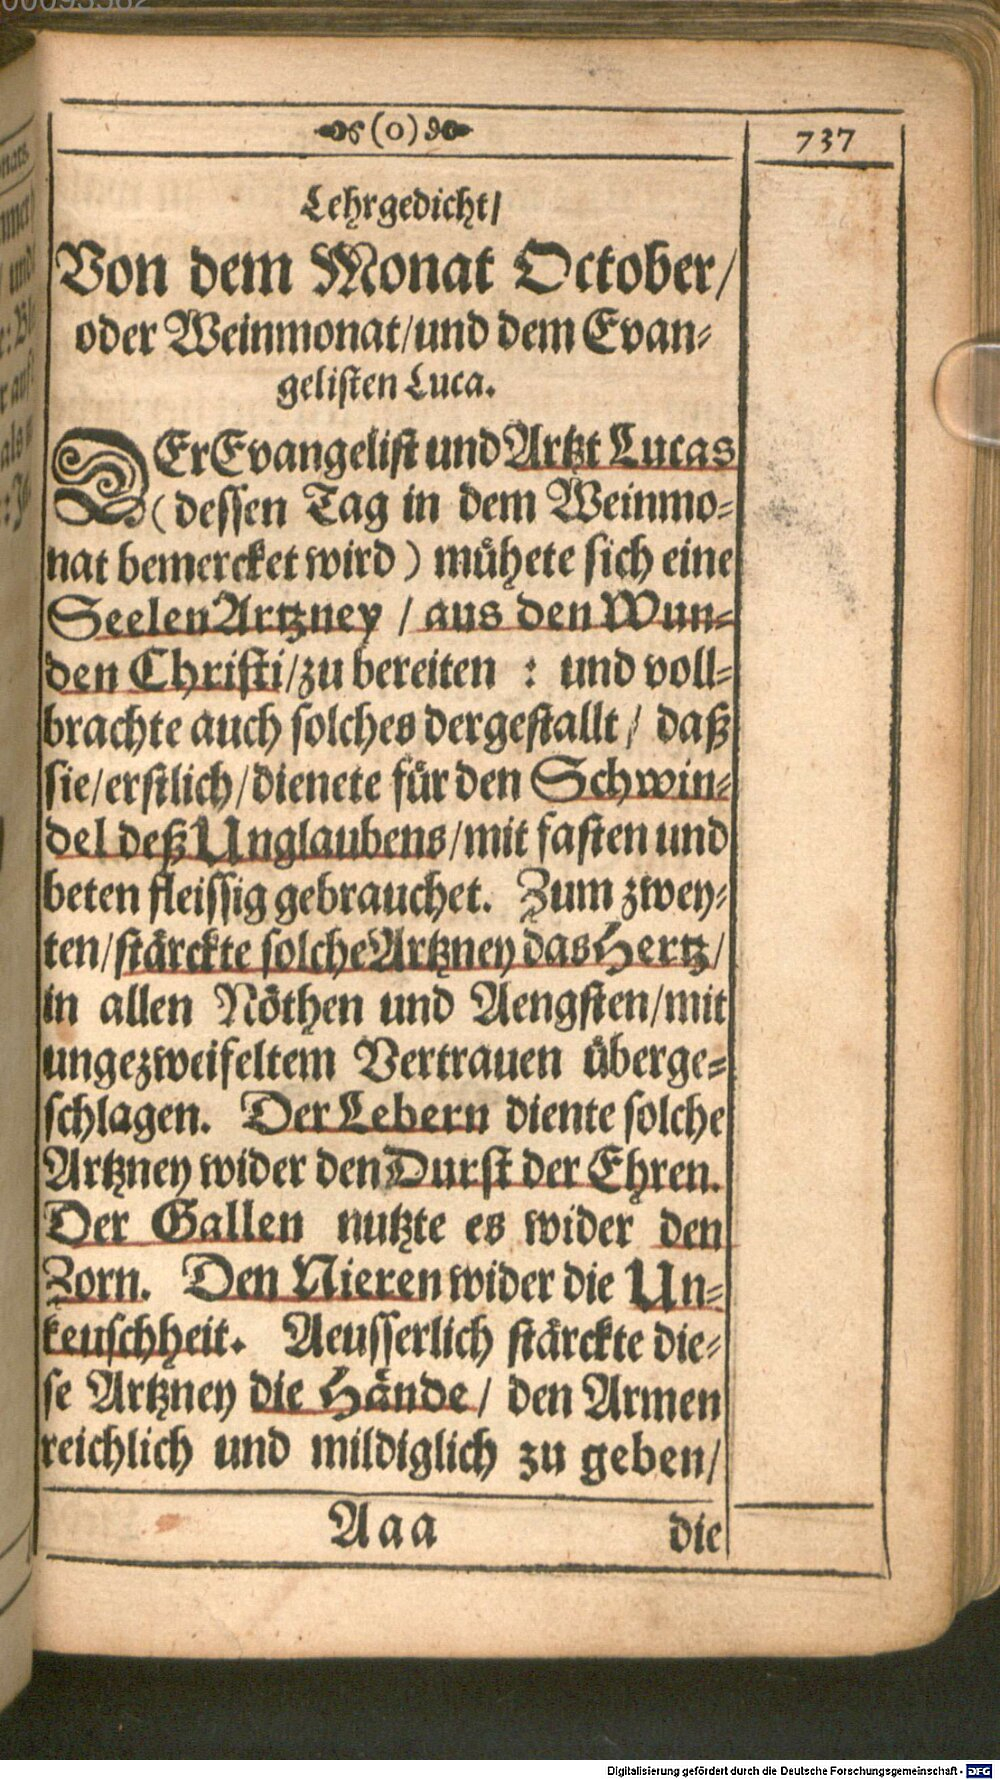 (o)
737
Lehrgedicht/
Von dem Monat October/
oder Weinmonat/und dem Evan-
gelisten Luca.
DEr Evangelist und Artzt Lucas
(dessen Tag in dem Weinmo-
nat bemercket wird) mühete sich eine
Seelen Artzney / aus den Wun-
den Christi/zu bereiten : und voll-
brachte auch solches dergestallt/ daß
sie/erstlich/dienete für den Schwin-
del deß Unglaubens/mit fasten und
beten fleissig gebrauchet. Zum zwey-
ten/stärckte solche Artzney das Hertz/
in allen Nöthen und Aengsten/mit
ungezweifeltem Vertrauen überge-
schlagen. Der Lebern diente solche
Artzney wider den Durst der Ehren.
Der Gallen nutzte es wider den
Zorn. Den Nieren wider die Un-
keuschheit. Aeusserlich stärckte die-
se Artzney die Hände/ den Armen
reichlich und mildiglich zu geben/
Aaa die
Digitalisierung gefördert durch die Deutsche Forschungsgemeinschaft - DFG